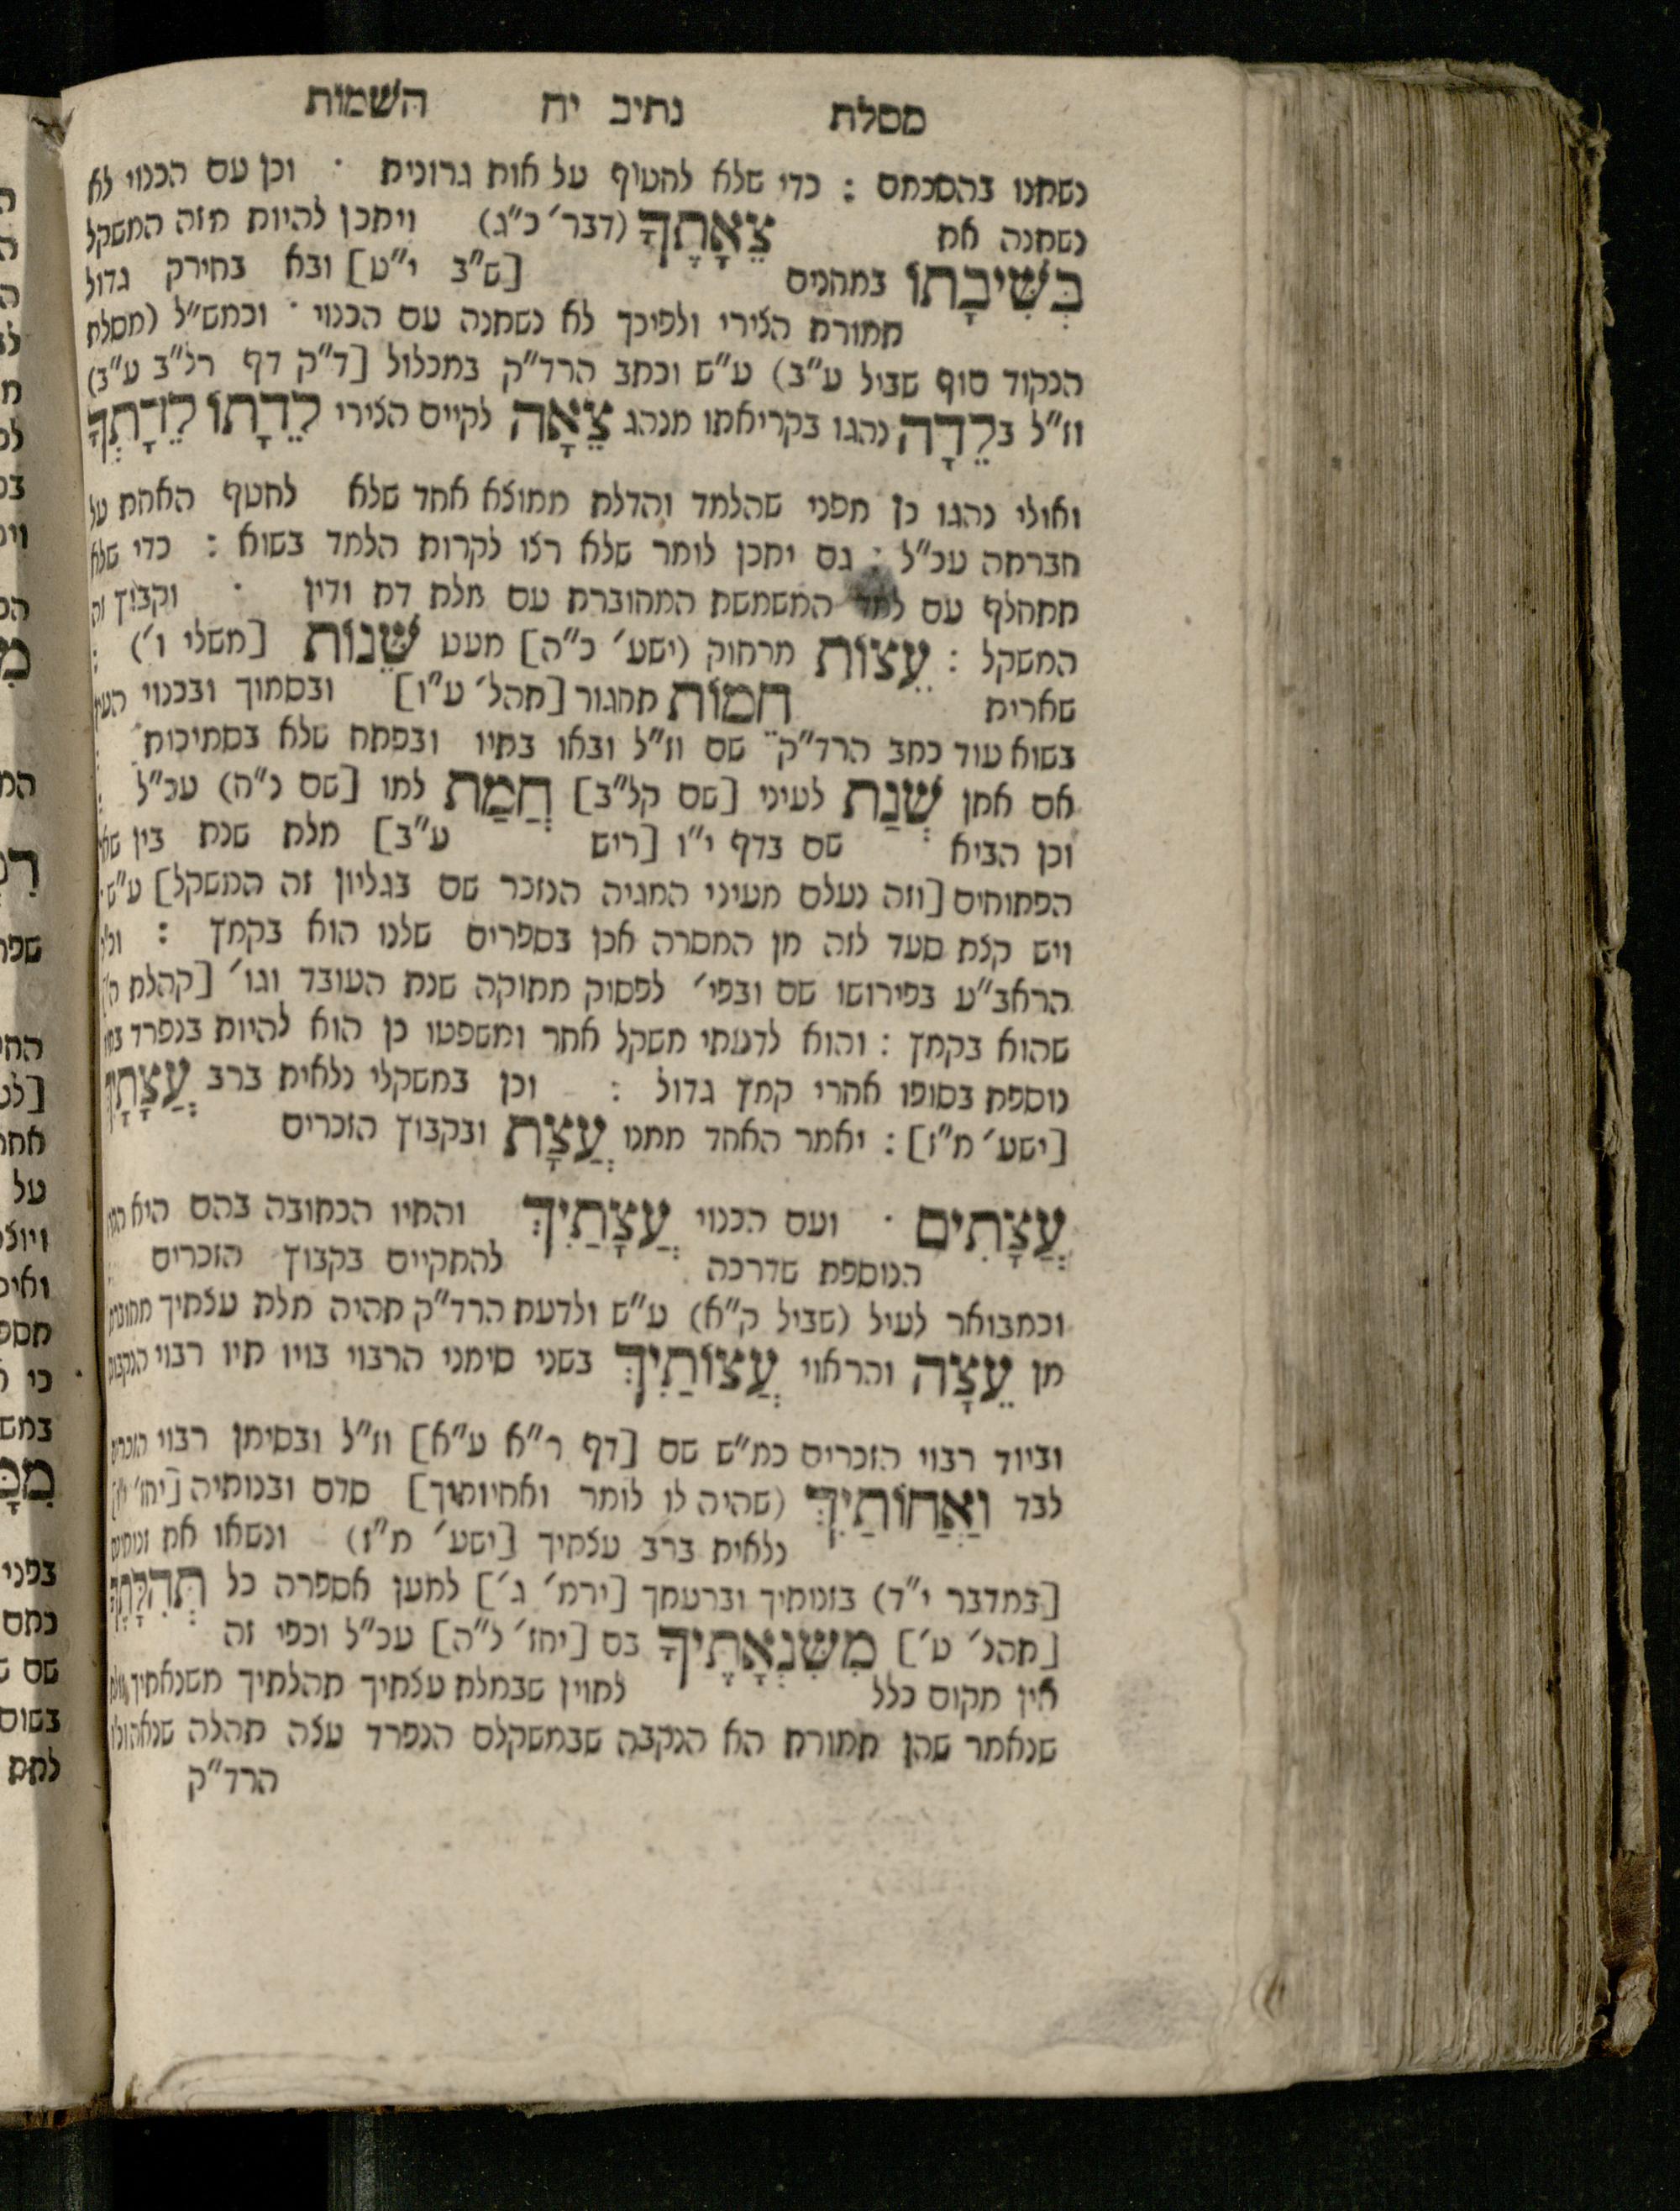 מסלת נתיב יח השמות
נשתנו בהסכמס : כדי שלא לחטוף על אות גרונית · וכן עם הכנוי לא
נשתנה את צֵאָתְךָ (דבר׳ כ״ג) ויתכן להיות מזה המשקל
בְּשִׁיבָתוֹ במחנים [ש״ב י״ט] ובא בחירק גדול
תמורת הצירי ולפיכך לא נשתנה עם הכנוי · וכמש״ל (מסלת
הנקוד סוף שביל ע״ב) ע״ש וכתב הרד״ק במכלול [ד״ק דף רל״ב ע״ב)
וז״ל בלֵדָה נהגו בקריאתו מנהג צֵאָה לקיים הצירי לֵדָתוֹ לֵדָתְךָ
ואולי נהגו כן מפני שהלמד והדלת ממוצא אחד שלא לחטף האחת על
חברתה עכ״ל : גם יתכן לומר שלא רצו לקרות הלמד בשוא : כדי שלא
תתחלף עם למד המשמשת המחוברת עם מלת דת ודין · וקבוץ זה
המשקל : עֵצוֹת מרחוק (ישע׳ כ״ה] מעט שֵׁנוֹת [משלי ו׳) :
שארית חֵמוֹת תחגור [תהל׳ ע״ו] ובסמוך ובכנוי
בשוא עוד כתב הרד״ק שם וז״ל ובאו בתיו ובפתח שלא בסמיכות
אם אתן שְׁנַת לעיני [שם קל״ב] חֲמַת למו [שם נ״ח) עכ״ל :
וכן הביא שם בדף י״ו [ריש ע״ב] מלת שנת בין
הפתוחים [וזה נעלם מעיני המגיה הנזכר שם בגליון זה המשקל] ע״ש
ויש קצת סעד לזה מן המסרה אכן בספרים שלנו הוא בקמץ :
הראב״ע בפירושו שם ובפי׳ לפסוק מתוקה שנת העובד וגו׳ [קהלת
שהוא בקמץ : והוא לדעתי משקל אחר ומשפטו כן הוא להיות בנפרד
נוספת בסופו אחרי קמץ גדול : וכן במשקלי נלאית ברב עֲצָתָךְ
[ישע׳ מ״ז] : יאמר האחד ממנו עֲצָת ובקבוץ הזכרים
עֲצָתִים · ועם הכנוי עֲצָתַיִךְ והתיו הכתובה בהם היא
הנוספת שדרכה להתקיים בקבוץ הזכרים
וכמבואר לעיל (שביל ק״א) ע״ש ולדעת הרד״ק תהיה מלת עצתיך
מן עֵצָה והראוי עֲצוֹתַיִךְ בשני סימני הרבוי בויו תיו רבוי
וביוד רבוי הזכרים כמ״ש שם [דף ר״א ע״א] וז״ל ובסימן רבוי
לבד וַאֲחוֹתַיִךְ (שהיה לו לומר ואחיותיך] סדם ובנותיה
נלאית ברב עצתיך [ישע׳ מ״ז) ונשאו את
[במדבר י״ד) בזנותיך וברעתך [ירמ׳ ג׳] למען אספרה כל תְּהִלָּתֶיךָ
[תהל׳ ט׳] מִשִּׂנְאָתֶיךָ בם [יחז׳ ל״ה] עכ״ל וכפי זה
אין מקום כלל לתוין שבמלת עצתיך תהלתיך משנאתיך
שנאמר שהן תמורת הא הנקבה שבמשקלם הנפרד עצה תהלה
הרד״ק